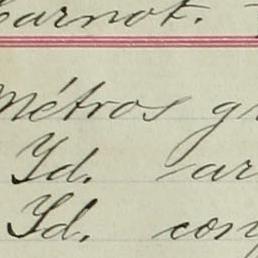 Carnot.
Métros gr
Id. ar
Id. con